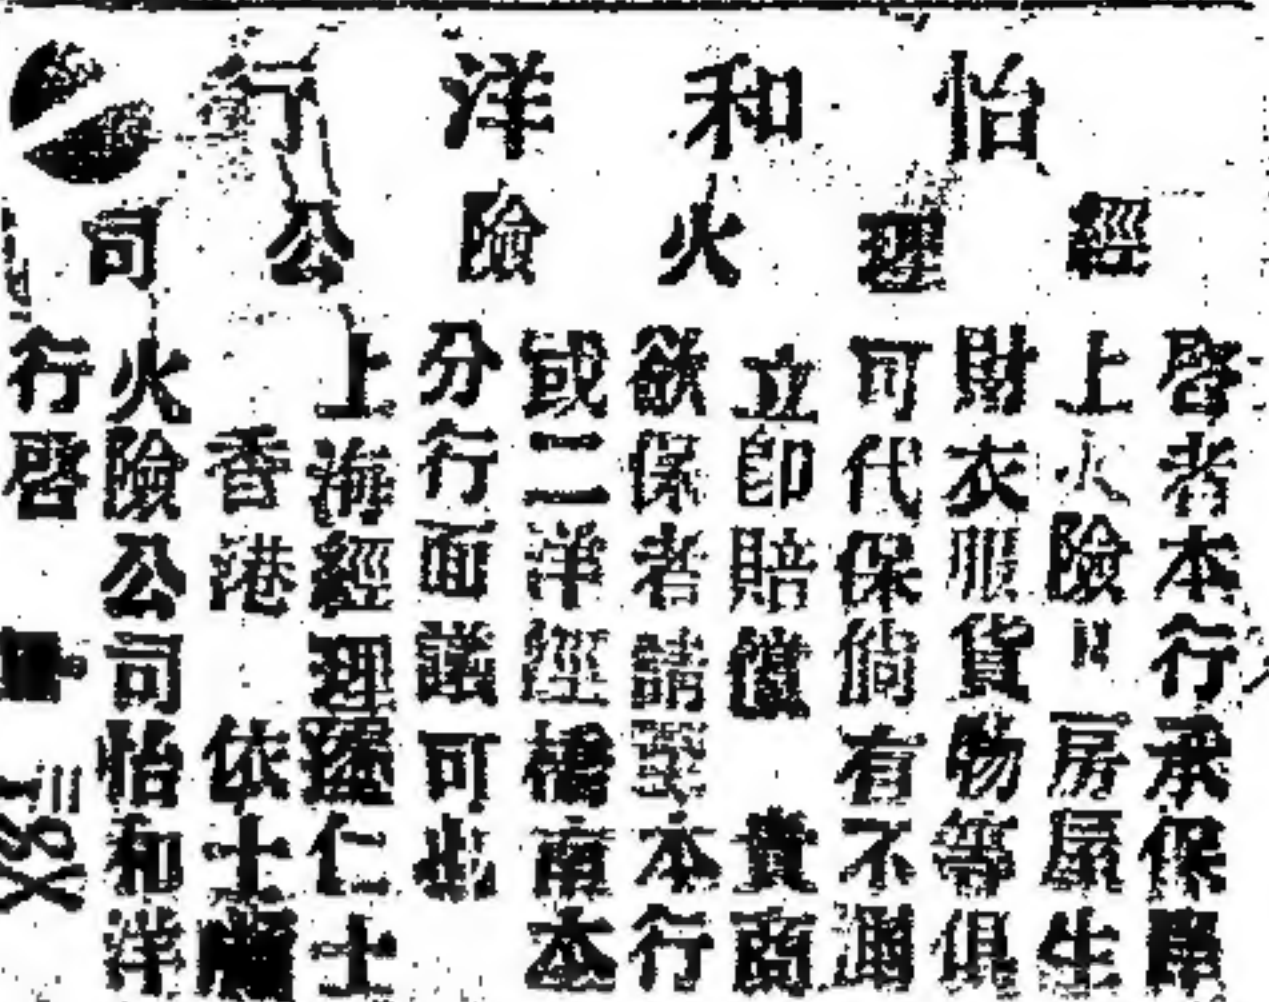 怡和洋行
經理火險公司
啓者本行承保
上火險房屋生
財衣服貨物等俱
可代保倘有不測
立卽賠償貴商
欲保者請至本行
或二洋經橋南本
分行面議可也
上海經理仁士
香港依士
火險公司怡和洋
行啓